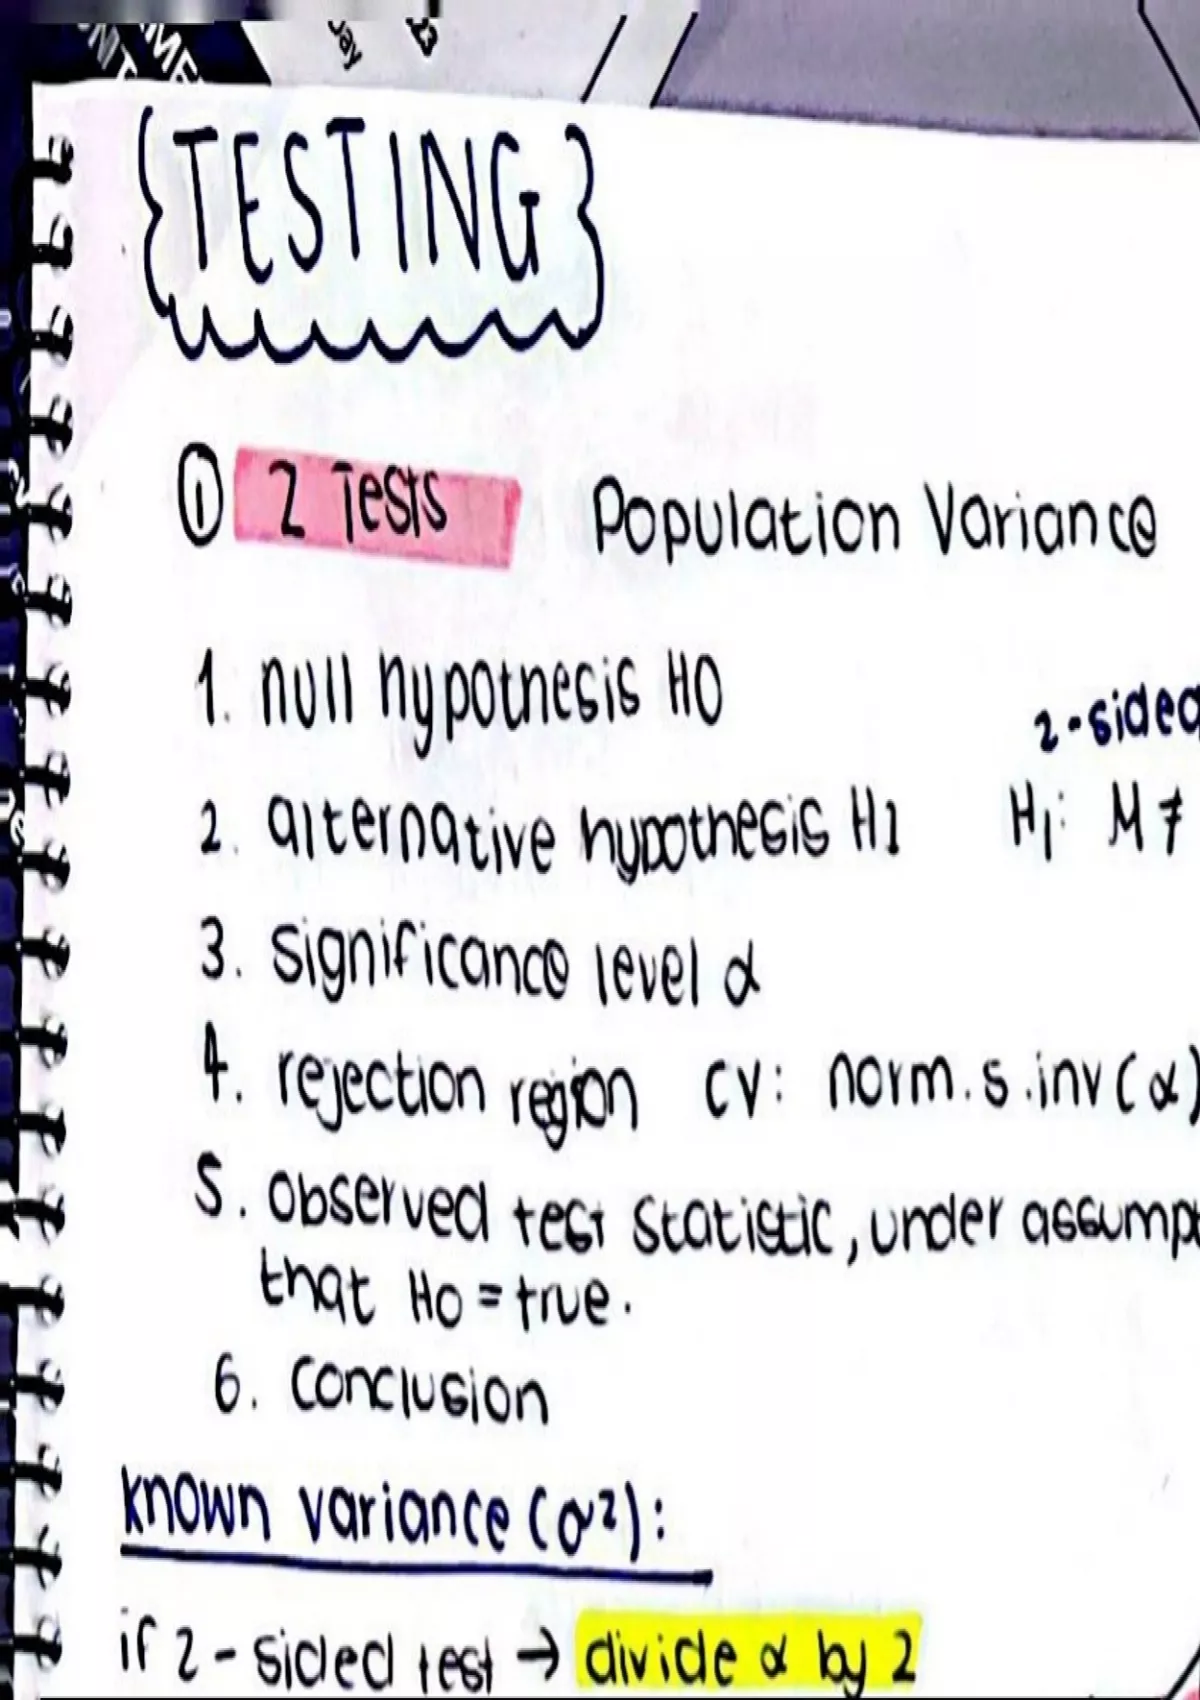 ME
NIT
Day
23
{TESTING}
① Z Tests Population Variance
1. null hypothesis H0
2-sided
2. alternative hypothesis H1 H1: M ≠
3. significance level α
4. rejection region CV: norm.s.inv(α)
5. Observed test statistic, under assump
that H0 = true.
6. Conclusion
known variance (σ²):
if 2-sided test → divide α by 2